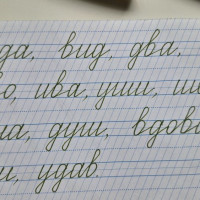 да, вид, два,
о, ива, уши, ши
а, душ, вдов
и, удав.